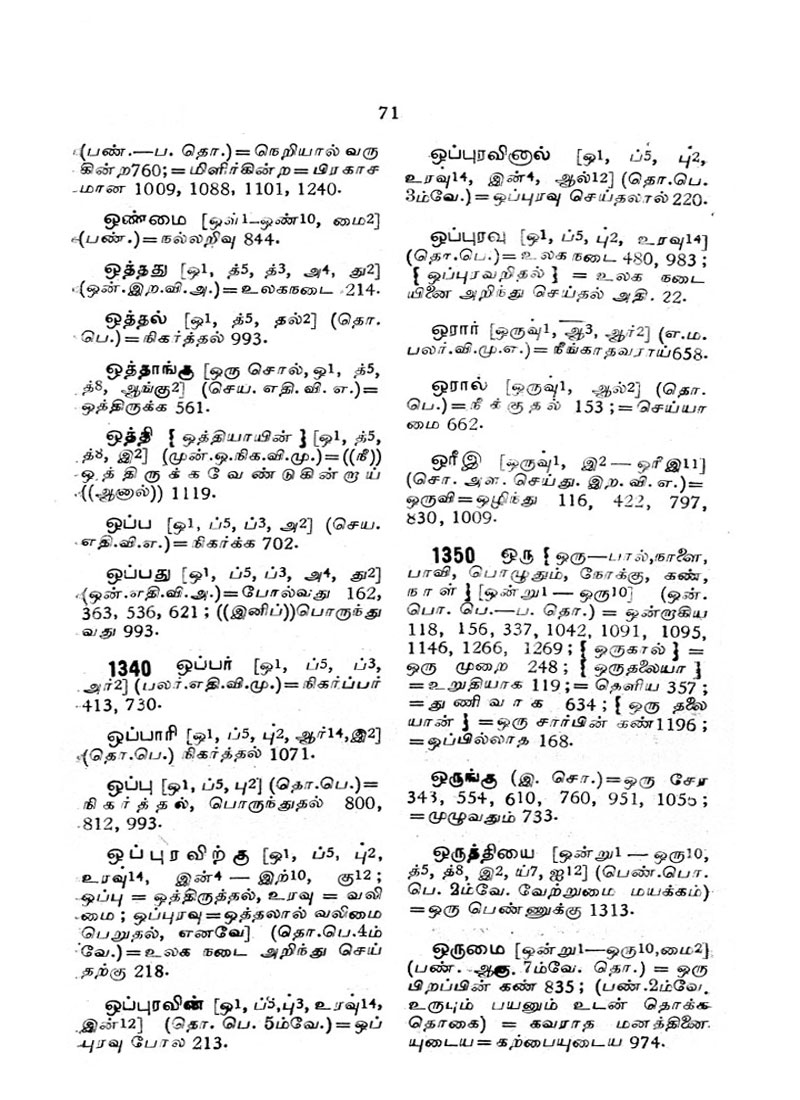 71
(பண்.—ப. தொ.)=நெறியால் வரு
கின்ற760;=மிளிர்கின்ற=பிரகாச
மான 1009, 1088, 1101, 1240.
ஒண்மை [ஒள்1_ஒண்10, மை2]
(பண்.)=நல்லறிவு 844.
ஒத்தது [ஒ1, த்5, த்3, அ4, து2]
(ஒன்.இற.வி.அ.)=உலகநடை 214.
ஒத்தல் [ஒ1, த்5, தல்2] (தொ.
பெ.)=நிகர்த்தல் 993.
ஒத்தாங்கு [ஒரு சொல், ஒ1, த்5,
த்8, ஆங்கு2] (செய. எதி.வி. எ.)=
ஒத்திருக்க 561.
ஒத்தி { ஒத்தியாயின் } [ஒ1, த்5,
த்8, இ2] (முன்.ஒ.நிக.வி.மு.)=((நீ))
ஒத்திருக்கவேண்டுகின்றாய்
((ஆனால்)) 1119.
ஒப்ப [ஒ1, ப்5, ப்3, அ2] (செய.
எதி.வி.எ.)=நிகர்க்க 702.
ஒப்பது [ஒ1, ப்5, ப்3, அ4, து2]
(ஒன்.எதி.வி.அ.)=போல்வது 162,
363, 536, 621; ((இனிப்))பொருந்து
வது 993.
1340 ஒப்பர் [ஒ1, ப்5, ப்3,
அர்2] (பலர்.எதி.வி.மு.)=நிகர்ப்பர்
413, 730.
ஒப்பாரி [ஒ1, ப்5, பு்2, ஆர்14,இ2]
(தொ.பெ.) நிகர்த்தல் 1071.
ஒப்பு [ஒ1, ப்5, பு2] (தொ.பெ.)=
நிகர்த்தல், பொருந்துதல் 800,
812, 993.
ஒப்புரவிற்கு [ஒ1, ப்5, பு்2,
உரவு்14, இன்4 — இற்10, கு12;
ஒப்பு = ஒத்திருத்தல், உரவு = வலி
மை; ஒப்புரவு=ஒத்தலால் வலிமை
பெறுதல், எனவே] (தொ.பெ.4ம்
வே.)=உலக நடை அறிந்து செய்
தற்கு 218.
ஒப்புரவின் [ஒ1, ப்5,பு்3, உரவு்14,
இன்12] (தொ. பெ. 5ம்வே.)=ஒப்
புரவு போல 213.
ஒப்புரவினால் [ஒ1, ப்5, பு்2,
உரவு்14, இன்4, ஆல்12] (தொ.பெ.
3ம்வே.)=ஒப்புரவு செய்தலால் 220.
ஒப்புரவு [ஒ1, ப்5, பு்2, உரவு14]
(தொ.பெ.)=உலக நடை 480, 983;
{ ஒப்புரவறிதல் } = உலக நடை
யினை அறிந்து செய்தல் அதி. 22.
ஒரார் [ஒருவு்1, ஆ3, ஆர்2] (எ.ம.
பலர்.வி.மு.எ.)=நீங்காதவராய்658.
ஒரால் [ஒருவு்1, ஆல்2] (தொ.
பெ.)=நீக்குதல் 153;=செய்யா
மை 662.
ஒரீஇ [ஒருவு்1, இ2—ஒரீஇ11]
(சொ. அள. செய்து. இற. வி. எ.)=
ஒருவி=ஒழிந்து 116, 422, 797,
830, 1009.
1350 ஒரு { ஒரு—பால்,நாளை,
பாவி, பொழுதும், நோக்கு, கண்,
நாள் } [ஒன்று1—ஒரு10] (ஒன்.
பொ. பெ.—ப. தொ.) = ஒன்றாகிய
118, 156, 337, 1042, 1091, 1095,
1146, 1266, 1269; { ஒருகால் } =
ஒரு முறை 248; { ஒருதலையா }
=உறுதியாக 119;= தெளிய 357;
=துணிவாக 634; { ஒரு தலை
யான் } =ஒரு சார்பின் கண்1196;
=ஒப்பில்லாத 168.
ஒருங்கு (இ. சொ.)=ஒரு சேர
343, 554, 610, 760, 951, 1056;
=முழுவதும் 733.
ஒருத்தியை [ஒன்று1 — ஒரு10,
த்5, த்8, இ2, ய்7, ஐ12] (பெண்.பொ.
பெ. 2ம்வே. வேற்றுமை மயக்கம்)
=ஒரு பெண்ணுக்கு 1313.
ஒருமை [ஒன்று1—ஒரு10,மை2]
(பண். ஆகு. 7ம்வே. தொ.) = ஒரு
பிறப்பின் கண் 835; (பண்.2ம்வே.
உருபும் பயனும் உடன் தொக்க
தொகை) = கவராத மனத்தினை
யுடைய=கற்பையுடைய 974.